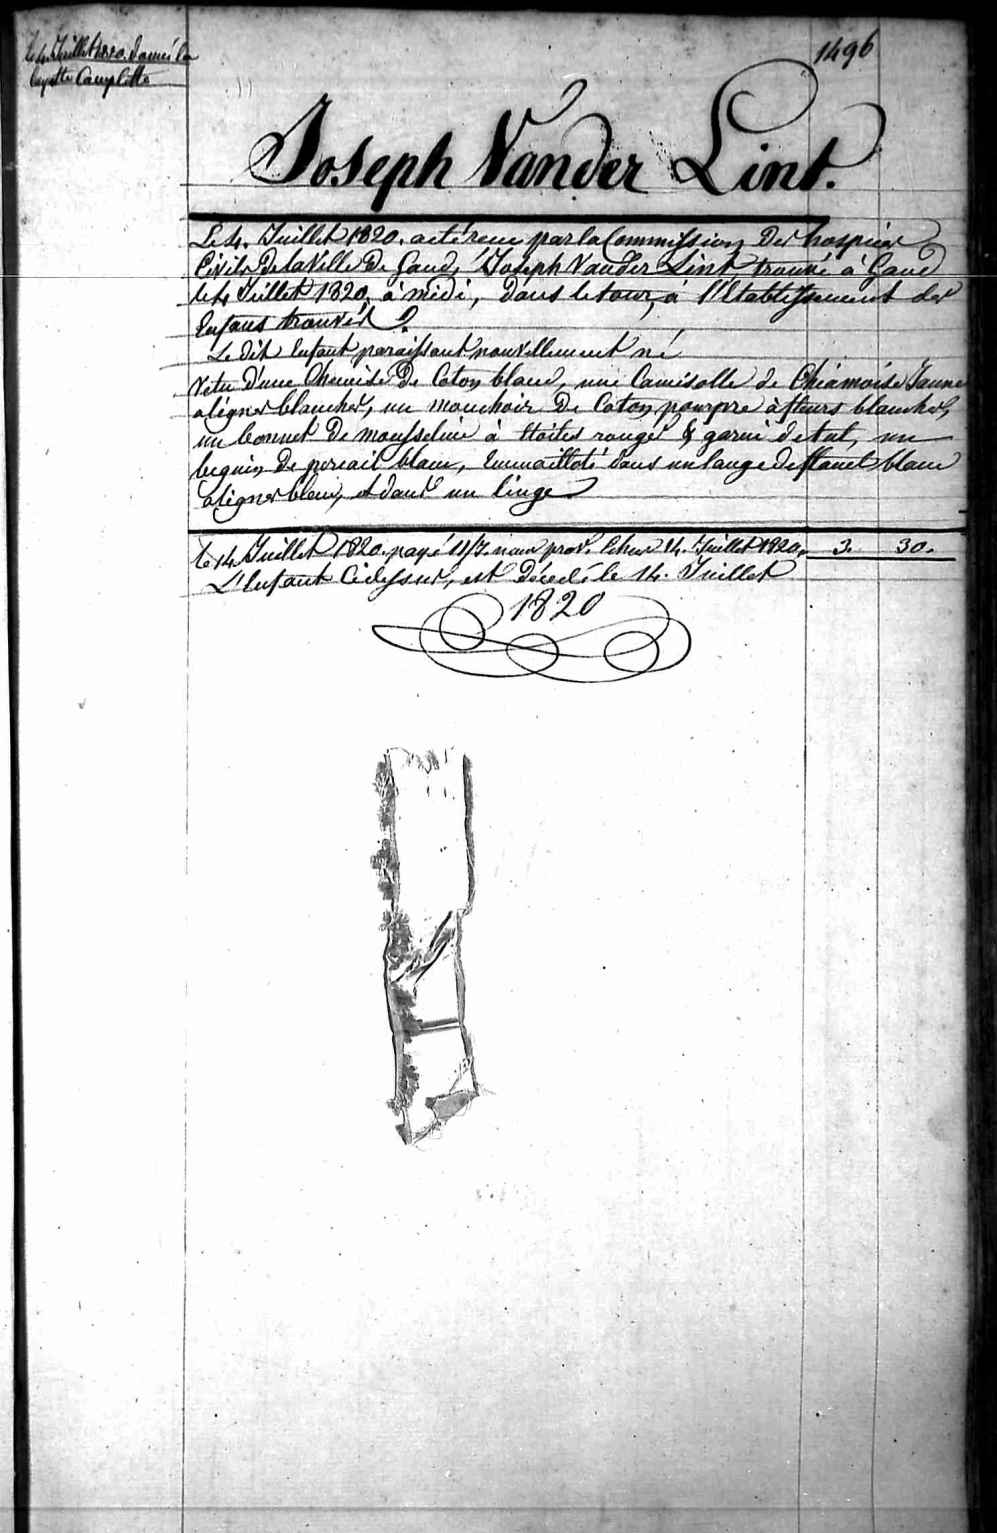 le 4 Juillet 1820. donné la
layette Complette
1496
Joseph Vander Lint.
Le 4. Juillet 1820. a été reçu par la Commission Des hospices
Civils De la Ville De Gand, Joseph Vander Lint trouvé à Gand
le 4 Juillet 1820, à midi, dans le tour, à l'Etablissement des
Enfans trouvés
Le dit Enfant paraissant nouvellement né
Vetu d'une Chemise De Coton blanc, une Camisolle de Chiamoise Jaune
a lignes blanches, un mouchoir De Coton pourpre à fleurs blanches,
un bonnet De mousseline à Etoiles rouges & garni de tul, un
beguin De percail blanc, Emmailloté dans un lange de flanel blanc
a lignes bleu, et dans un linge
le 14 Juillet 1820. payé 14. Juillet 1820. 3. 30.
L'Enfant Cidessus, est Décedé le 14. Juillet
1820